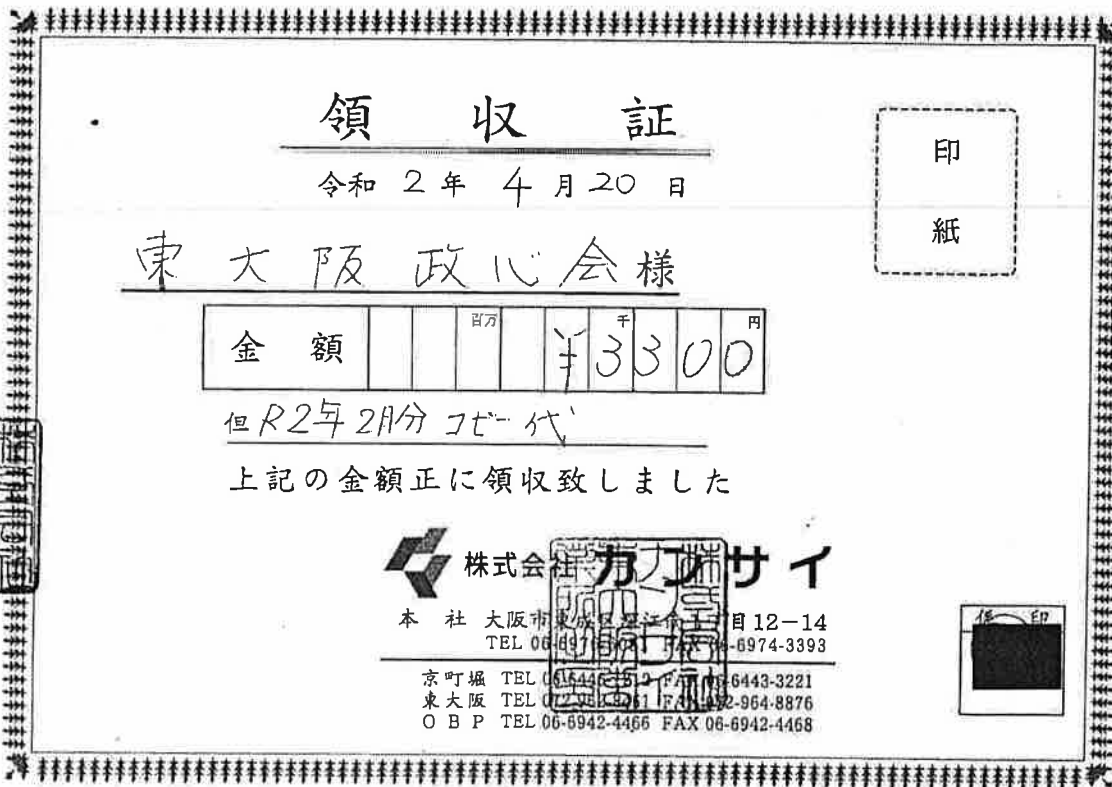 領収証
令和 2年 4月20日
印紙
東大阪政心会様
金額 百万 ¥3千300円
但 R2年2月分 コピー代
上記の金額正に領収致しました
株式会社 カンサイ
本社 大阪市東成区 目12-14
TEL 06-697 FAX 06-6974-3393
京町堀 TEL 06-644 FAX 06-6443-3221
東大阪 TEL 072-96 FAX 072-964-8876
OBP TEL 06-6942-4466 FAX 06-6942-4468
印